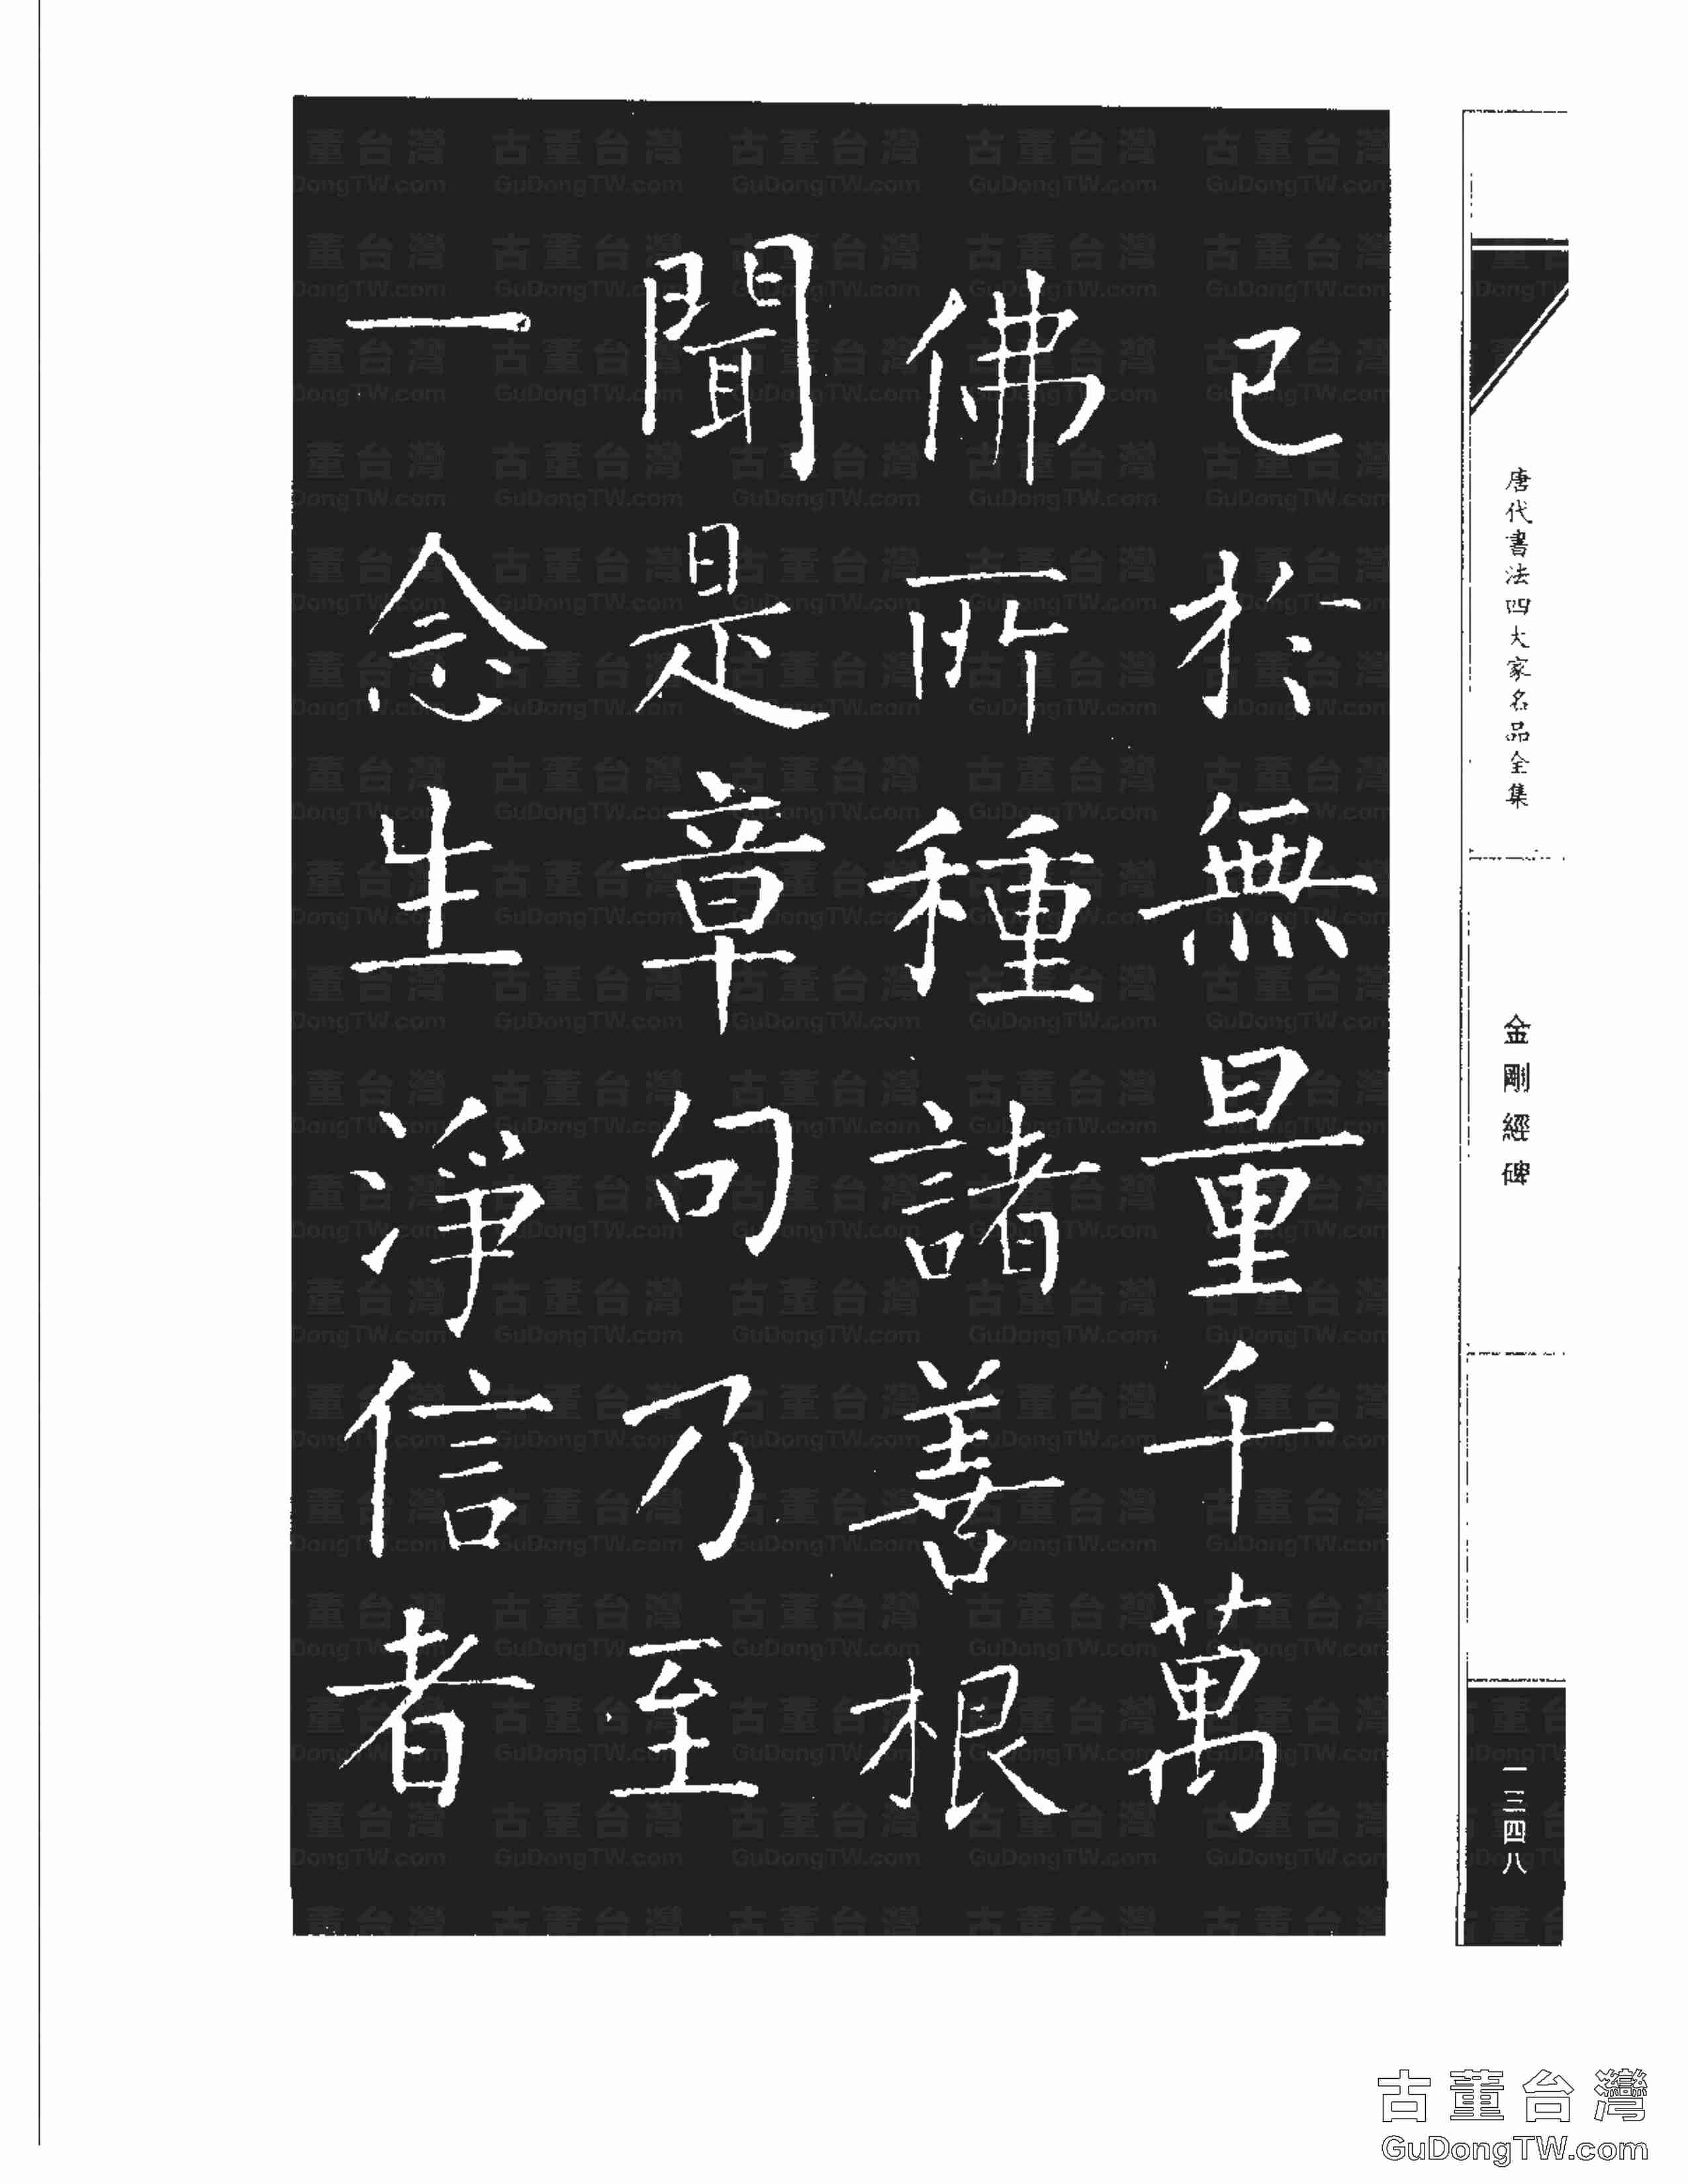 唐代書法四大家名品全集
金剛經碑
一三四八
已於無量千萬
佛所種諸善根
聞是章句乃至
一念生淨信者
古董台灣
GuDongTW.com